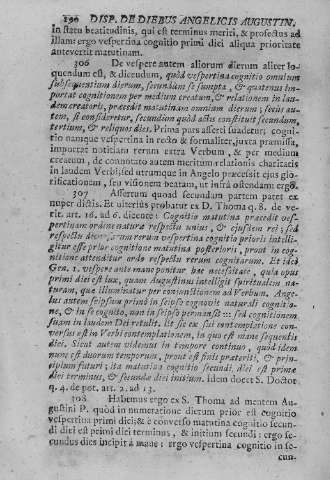 196 DISP. DE DIEBUS ANGELICIS AUGUSTIN.
in statu beatitudinis, qui est terminus meriti, & profectus ad
illam: ergo vespertina cognitio primi diei aliqua prioritate
antevertit matutinam.
306 De vespere autem aliorum dierum aliter lo-
quendum est, & dicendum, quòd vespertina cognitio omnium
subsequentium dierum, secundùm se sumpta, & quatenus im-
portat cognitionem per medium creatum, & relationem in lau-
dem creatoris, præcedit matutinam omnium dierum; secus au-
tem, si consideretur, secundùm quòd actus constituit secundum,
tertium, & reliquos dies. Prima pars asserti suadetur; cogni-
tio namque vespertina in recto & formaliter, juxta præmissa,
importat notitiam rerum extra Verbum, & per medium
creatum, de connotato autem meritum relationis charitatis
in laudem Verbi; sed utrumque in Angelo præcessit ejus glo-
rificationem, seu visionem beatam, ut infrà ostendam: ergo.
307 Assertum quoad secundam partem patet ex
nuper dictis. Et ulteriùs probatur ex D. Thoma q. 8. de ve-
rit. art. 16. ad 6. dicente: Cognitio matutina præcedit ves-
pertinam ordine naturæ respectu unius, & ejusdem rei; sed
respectu diversarum rerum vespertina cognitio prioris intelli-
gitur esse prior cognitione matutina posterioris, prout in cog-
nitione attenditur ordo respectu rerum cognitarum. Et ideò
Gen. 1. vespere ante mane ponitur hac necessitate, quia opus
primi diei est lux, quam Augustinus intelligit spiritualem na-
turam, quæ illuminatur per conversionem ad Verbum. Ange-
lus autem seipsum primò in seipso cognovit naturali cognitio-
ne, & in se cognito, non in seipso permansit ::: sed cognitionem
suam in laudem Dei retulit. Et sic ex sui contemplatione con-
versus est in Verbi contemplationem, in quo est mane sequentis
diei. Sicut autem videmus in tempore continuo, quòd idem
nunc est duorum temporum, prout est finis præteriti, & prin-
cipium futuri; ita matutina cognitio secundi diei est primæ
diei terminus, & secundæ diei initium. idem docet S. Doctor
q. 4. de pot. art. 2. ad 13.
308 Habemus ergo ex S. Thoma ad mentem Au-
gustini P. quòd in numeratione dierum prior est cognitio
vespertina primi diei; & è converso matutina cognitio secun-
di diei est primi diei terminus, & initium secundi: ergo se-
cundus dies incipit à mane: ergo vespertina cognitio in se-
cun-